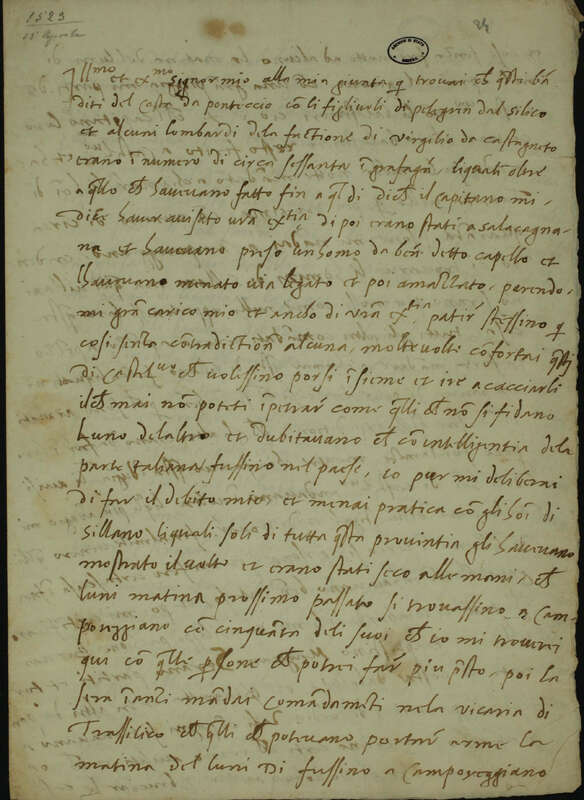 1523
15 Agosto
34
ARCHIVIO DI STATO
Ill.mo et ex.mo signor mio alla mia giunta q trovai ch q̄sti bā
diti del costa da ponteccio cō li figliuoli di pelegrin dal silico
et alcuni lombardi dela factione di virgilio da castagneto
erano ī numero di circa sessanta ī grafagn̄, liquali oltre
a q̄llo ch havevano fatto fin a q̄l dì dich il capitano mi
dice haver avisato vrā ex.tia, di poi erano stati a sala cagna
na et havevano preso un homo da bēn detto capello et
lhavevano menato via legato et poi amazzato, parendo
mi grā carico mio et ancho di vrā ex.tia patir stessino q
cosi senza cōtradiction alcuna, molte volte cōfortai q̄sti
di castel.vo ch volessino porsi īsieme et ire a cacciarli
ilch mai nō poteti īpetrar come q̄lli ch nō si fidano
luno delaltro et dubitavano ch cō intelligentia dela
parte italiana fussino nel paese, io pur mi deliberai
di far il debito mio et menai pratica cō gli hōi di
sillano liquali soli di tutta q̄sta provintia gli havevano
mostrato il volto et erano stati seco alle mani, ch
luni matina prossimo passato si trovassino a Cam
poreggiano cō cinquāta deli suoi ch io mi troverei
qui cō q̄lle p̄sone ch potrei far piu p̄sto, poi la
sera īanti mādai comādam̄ti nela vicaria di
Trassilico ch q̄lli ch potevano portar arme la
matina del luni di fussino a Camporeggiano